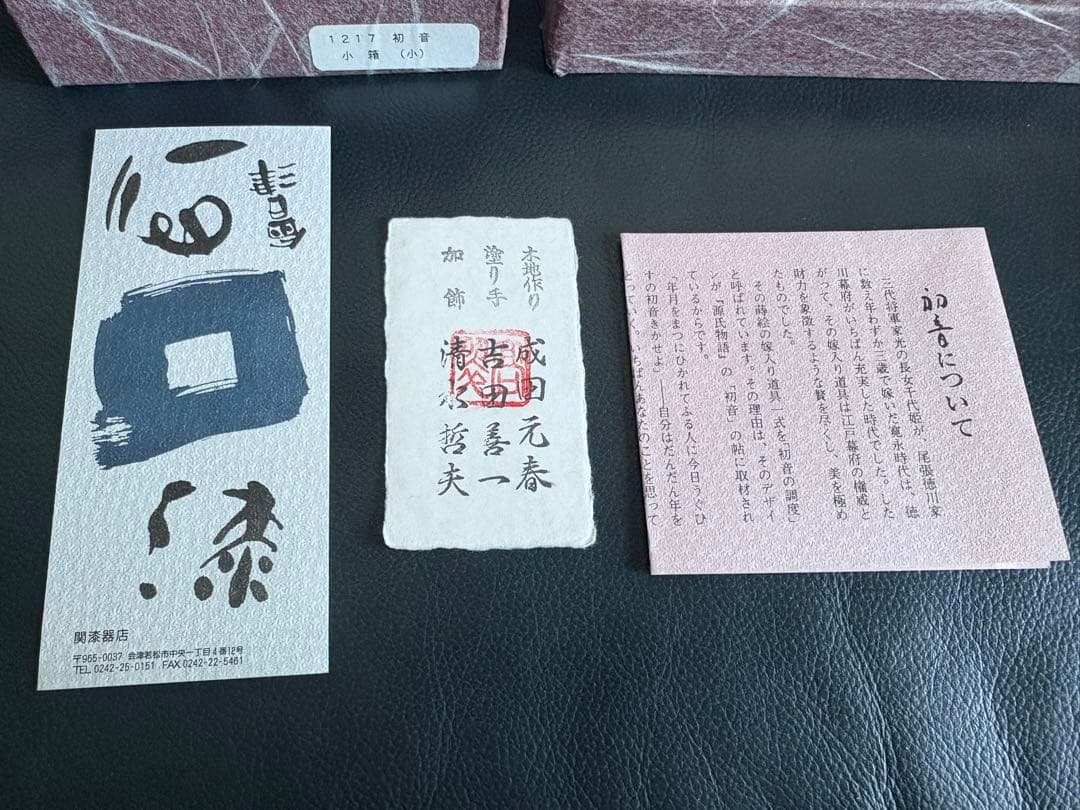 1217 初音
小箱 (小)
會津
漆
関漆器店
〒965-0037 会津若松市中央一丁目4番12号
TEL 0242-25-0151 FAX 0242-22-5461
木地作り 成田元春
塗り手 吉田善一
加飾 清水哲夫
初音について
三代将軍家光の長女千代姫が、尾張徳川家
に数え年わずか三歳で嫁いだ寛永時代は、徳
川幕府がいちばん充実した時代でした。した
がって、その嫁入り道具は江戸幕府の権威と
財力を象徴するような贅を尽くし、美を極め
たものでした。
その蒔絵の嫁入り道具一式を「初音の調度」
と呼ばれています。その理由は、そのデザイ
ンが『源氏物語』の「初音」の帖に取材され
ているからです。
「年月をまつにひかれてふる人に今日うぐひ
すの初音きかせよ」――自分はだんだん年を
とっていく。いちばんあなたのことを思って